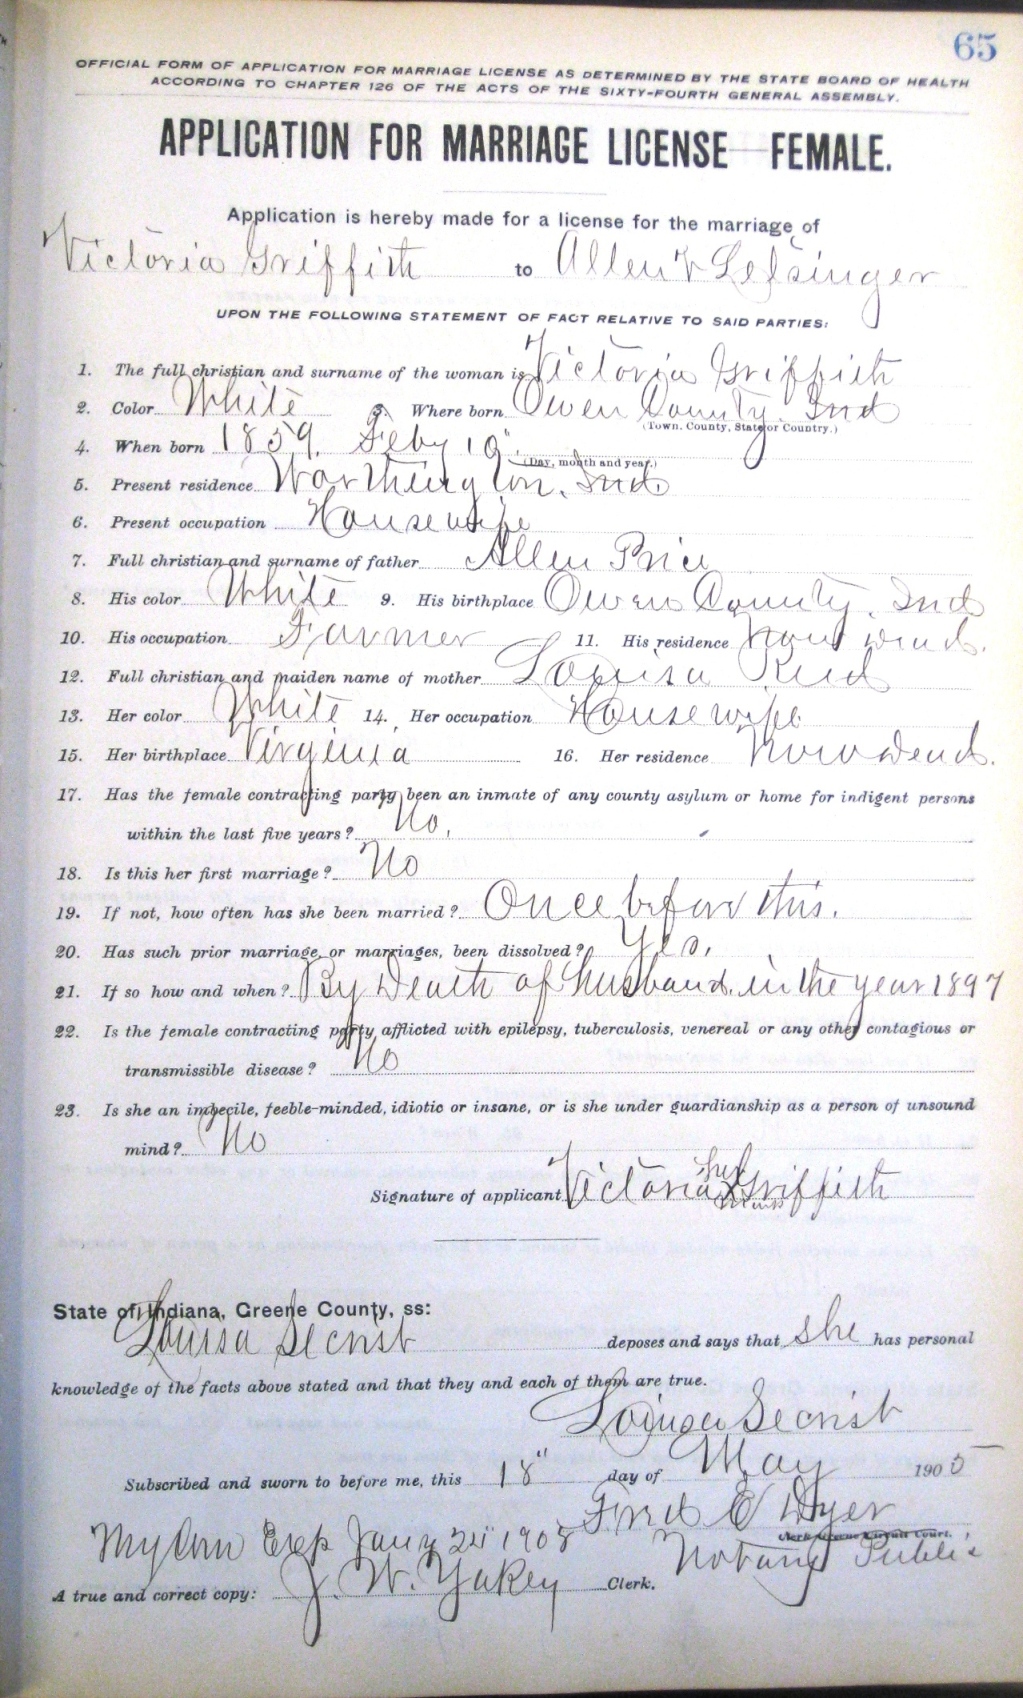 65
OFFICIAL FORM OF APPLICATION FOR MARRIAGE LICENSE AS DETERMINED BY THE STATE BOARD OF HEALTH
ACCORDING TO CHAPTER 126 OF THE ACTS OF THE SIXTY-FOURTH GENERAL ASSEMBLY.
APPLICATION FOR MARRIAGE LICENSE—FEMALE.
Application is hereby made for a license for the marriage of
Victoria Griffith to Allen V Lefsinger
UPON THE FOLLOWING STATEMENT OF FACT RELATIVE TO SAID PARTIES:
1. The full christian and surname of the woman is Victoria Griffith
2. Color White 3. Where born Owen County, Ind
(Town, County, State or Country.)
4. When born 1859, Feby 19"
(Day, month and year.)
5. Present residence Worthington, Ind
6. Present occupation Housewife
7. Full christian and surname of father Allen Price
8. His color White 9. His birthplace Owen County, Ind
10. His occupation Farmer 11. His residence Now dead.
12. Full christian and maiden name of mother Louisa Reid
13. Her color White 14. Her occupation Housewife
15. Her birthplace Virginia 16. Her residence Now dead.
17. Has the female contracting party been an inmate of any county asylum or home for indigent persons
within the last five years? No.
18. Is this her first marriage? No
19. If not, how often has she been married? Once before this.
20. Has such prior marriage, or marriages, been dissolved? Yes,
21. If so how and when? By Death of husband, in the year 1897
22. Is the female contracting party afflicted with epilepsy, tuberculosis, venereal or any other contagious or
transmissible disease? No
23. Is she an imbecile, feeble-minded, idiotic or insane, or is she under guardianship as a person of unsound
mind? No
Signature of applicant Victoria her X mark Griffith
State of Indiana, Greene County, ss:
Louisa Secrist deposes and says that she has personal
knowledge of the facts above stated and that they and each of them are true.
Louisa Secrist
Subscribed and sworn to before me, this 18" day of May 1905
Fred E Dyer
Clerk Greene Circuit Court.
My Com Exp Jany 24" 1908 Notary Public
A true and correct copy: J. W. Yakey Clerk.